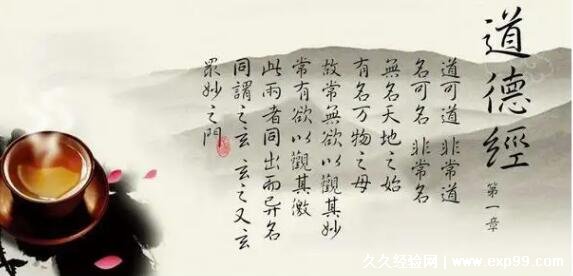 道德經
第一章
道可道 非常道
名可名 非常名
無名天地之始
有名万物之母
故常無欲以觀其妙
常有欲以觀其徼
此兩者同出而异名
同謂之玄 玄之又玄
眾妙之門
久久经验网 www.exp99.com